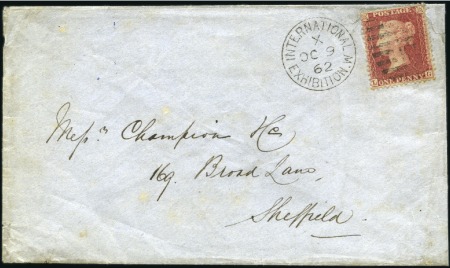 POSTAGE
INTERNATIONAL.W.
X
OC 9
62
EXHIBITION
ONE PENNY
Messrs Champion &c
169 Broad Lane,
Sheffield.